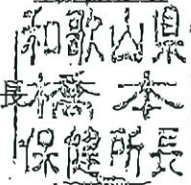 和歌山県
橋本
保健所長
長